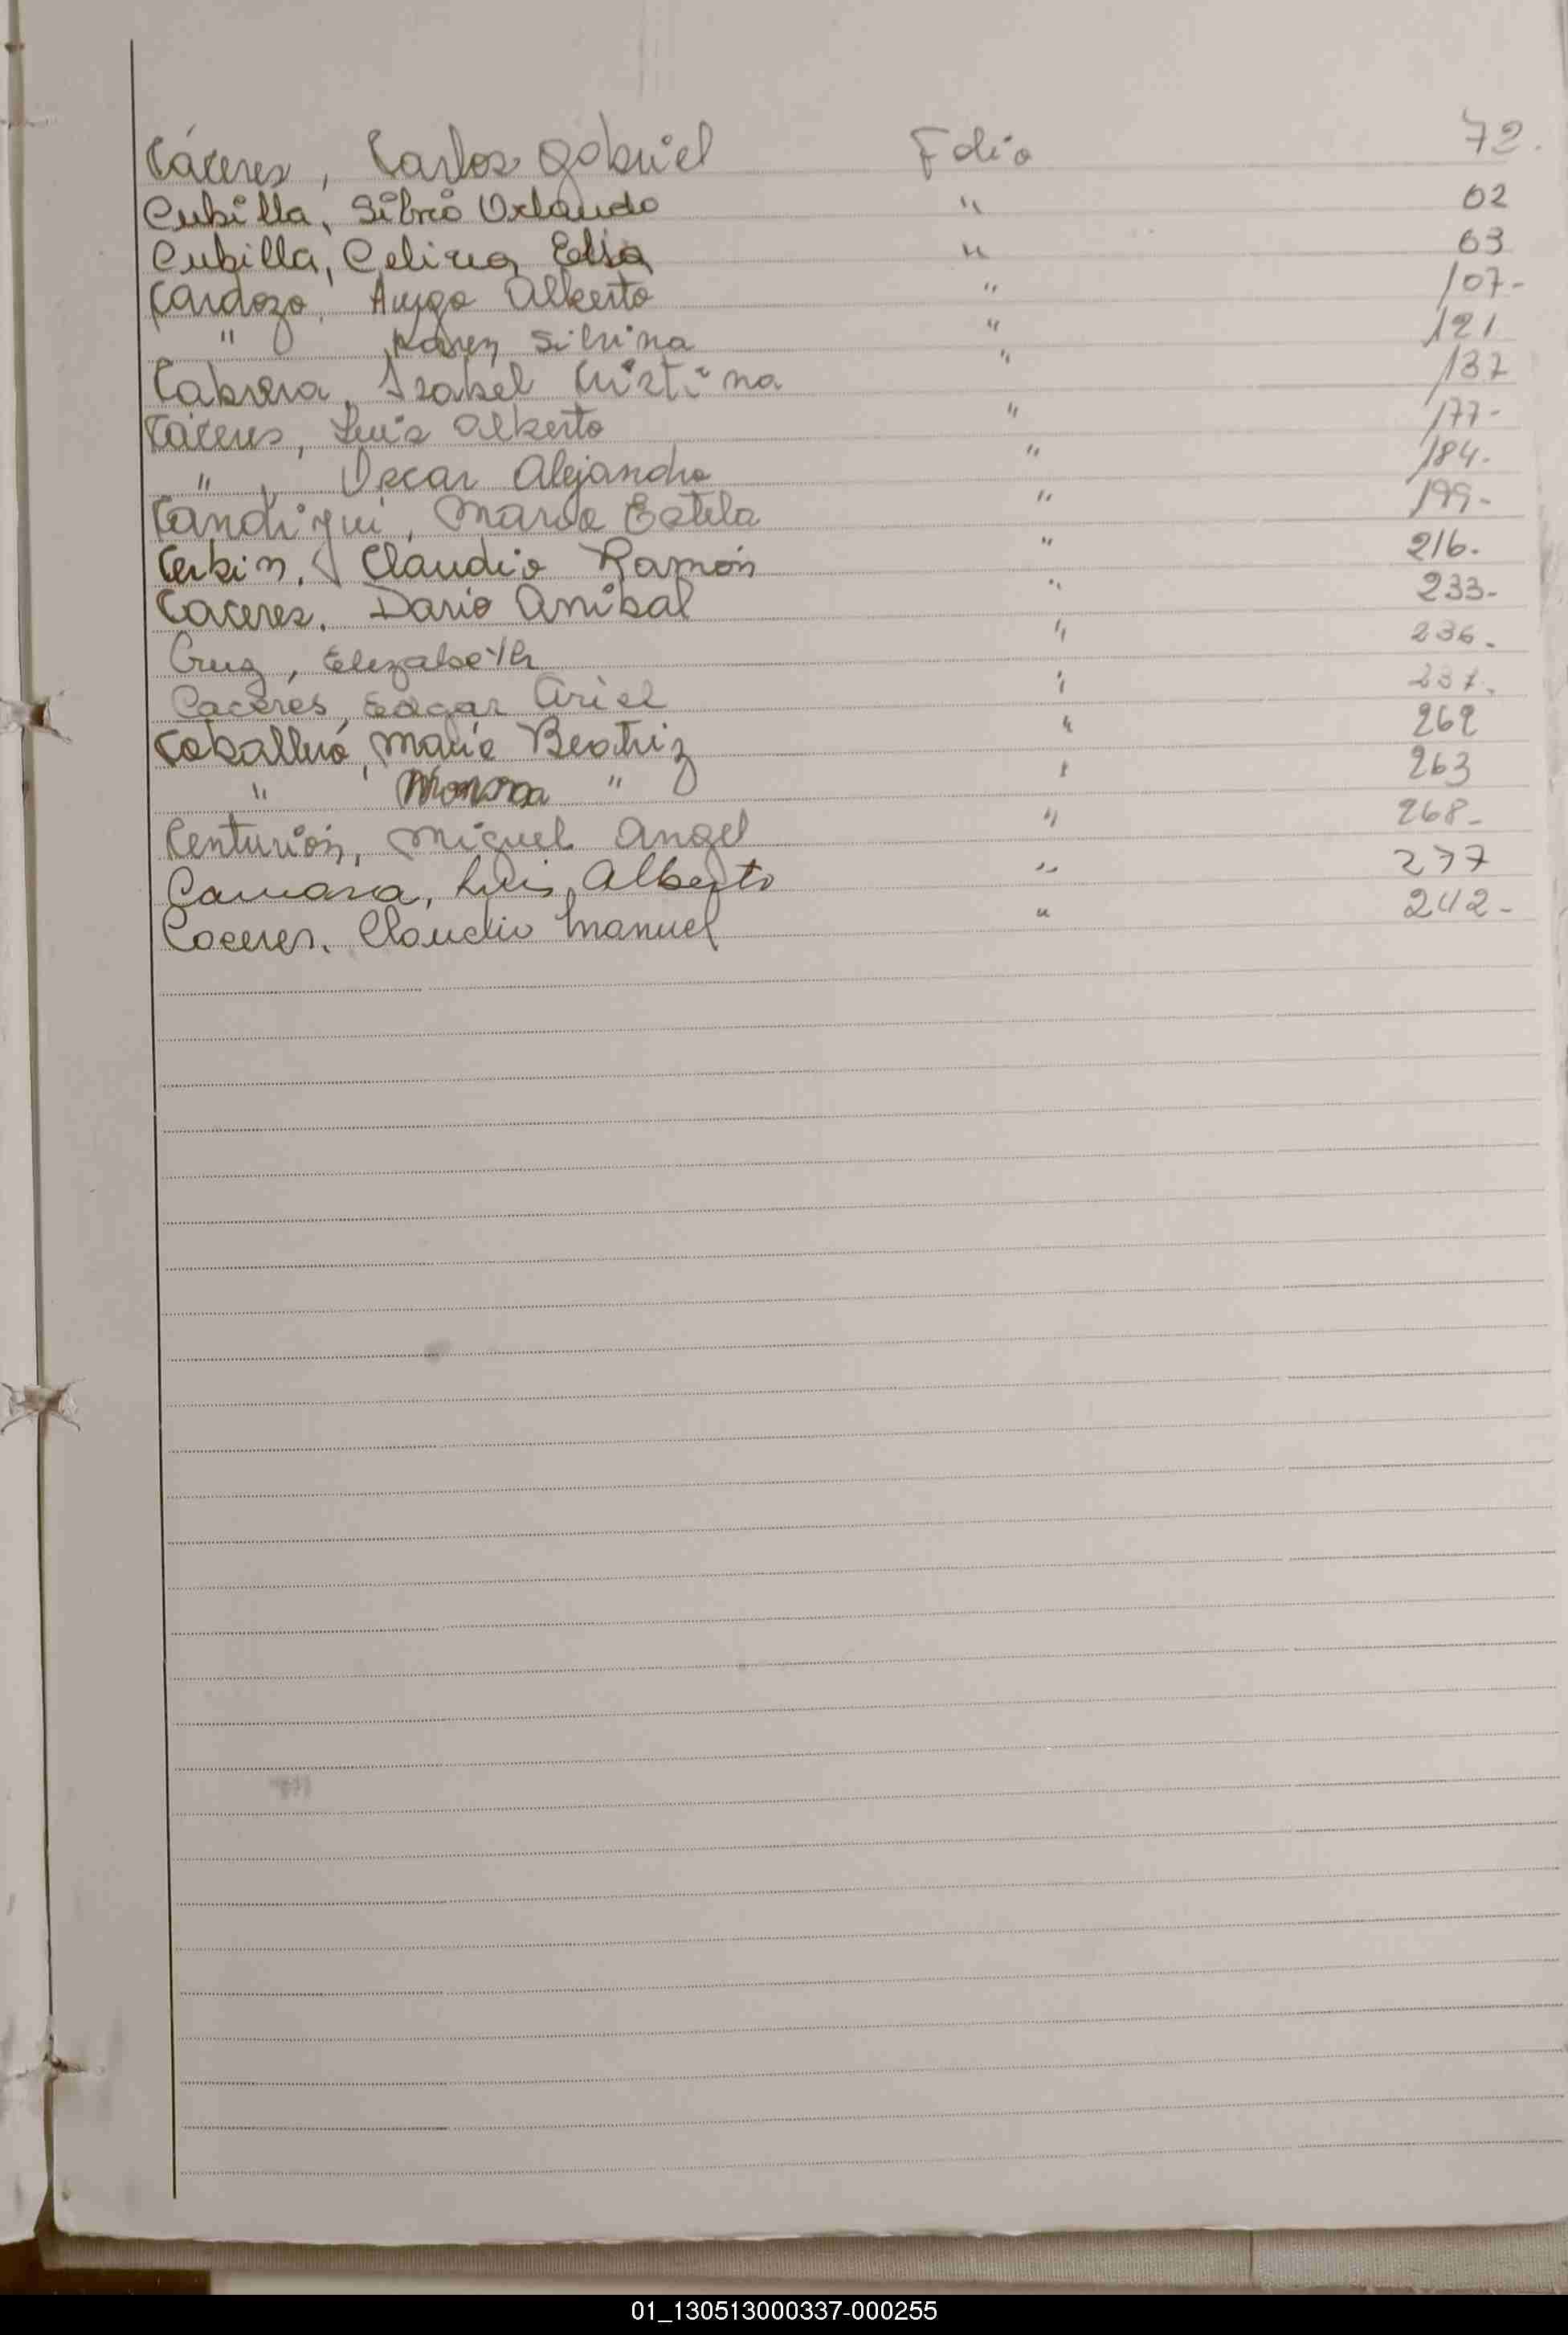 Cáceres, Carlos Gabriel Folio 72.
Cubilla, Silvio Orlando " 02
Cubilla, Celina Elsa " 03
Cardozo, Hugo Alberto " 107-
" Karen Silvina " 121
Cabrera, Isabel Cristina " 137
Cáceres, Luis Alberto " 177-
" , Oscar Alejandro " 184-
María Estela " 199-
Claudio Ramón " 216.
Caceres, Dario Anibal " 233-
Cruz, Elizabeth " 236.
Caceres, Edgar Ariel " 237.
Caballero, María Beatriz " 262
" " " 263
Centurión, Miguel Angel " 268-
Camara, Luis Alberto " 277
Caceres, Claudio Manuel " 242-
01_130513000337-000255